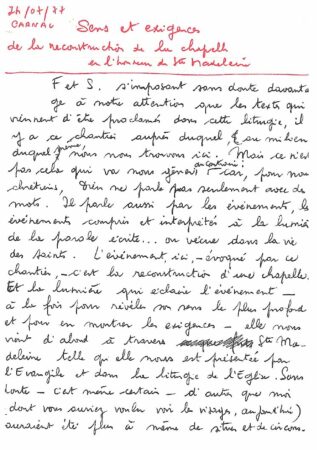 24/07/77
CARNAC
Sens et exigences
de la reconstruction de la chapelle
en l'honneur de Ste Madeleine
F et S. s'imposant sans doute davanta
ge à notre attention que les textes qui
viennent d'être proclamés dans cette liturgie, il
y a ce chantier auprès duquel, (et au milieu
duquel même) nous nous trouvons ici. Mais ce n'est
pas cela qui va nous gêner! au contraire! car, pour nous
chrétiens, Dieu ne parle pas seulement avec des
mots. Il parle aussi par les événements, les
événements compris et interprétés à la lumière
de la parole écrite... ou vécue dans la vie
des saints. L'événement, ici, - évoqué par ce
chantier, - c'est la reconstruction d'une chapelle.
Et la lumière qui éclaire l'événement -
à la fois pour révéler son sens le plus profond
et pour en montrer les exigences - elle nous
vient d'abord à travers Ste Ma-
deleine telle qu'elle nous est présentée par
l'Evangile et dans la liturgie de l'Eglise. Sans
doute - c'est même certain - d'autres que moi
(dont vous auriez voulu voir les visages, aujourd'hui)
auraient été plus à même de situer et de circons-